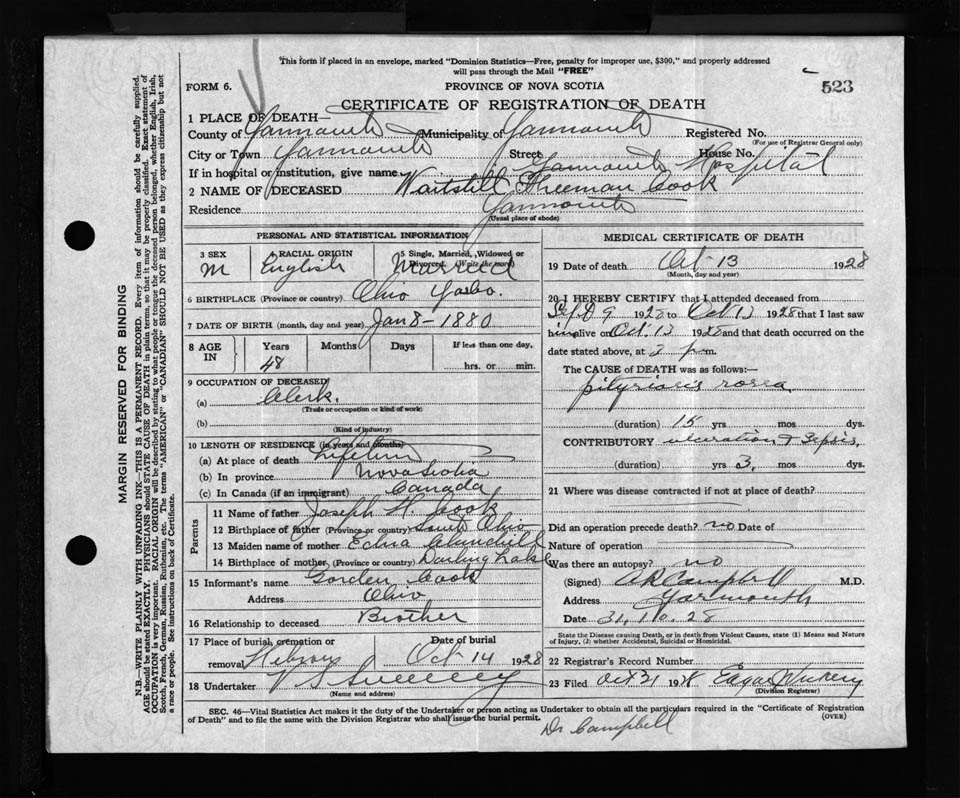 This form if placed in an envelope, marked "Dominion Statistics—Free, penalty for improper use, $300," and properly addressed
will pass through the Mail "FREE"
FORM 6.
PROVINCE OF NOVA SCOTIA
523
CERTIFICATE OF REGISTRATION OF DEATH
1 PLACE OF DEATH—
County of Yarmouth Municipality of Yarmouth Registered No.
(For use of Registrar General only)
City or Town Yarmouth Street House No.
If in hospital or institution, give name Yarmouth Hospital
2 NAME OF DECEASED Waitstill Freeman Cook
Residence Yarmouth
(Usual place of abode)
PERSONAL AND STATISTICAL INFORMATION
3 SEX 4 RACIAL ORIGIN 5 Single, Married, Widowed or Divorced. (Write the word)
M English Married
6 BIRTHPLACE (Province or country) Ohio
7 DATE OF BIRTH (month, day and year) Jan 8 - 1880
8 AGE IN Years Months Days If less than one day,
48 hrs. or min.
9 OCCUPATION OF DECEASED
(a) Clerk.
(Trade or occupation or kind of work)
(b)
(Kind of industry)
10 LENGTH OF RESIDENCE (in years and months)
(a) At place of death Lifetime
(b) In province Nova Scotia
(c) In Canada (if an immigrant) Canada
Parents
11 Name of father Joseph H. Cook
12 Birthplace of father (Province or country) South Ohio
13 Maiden name of mother Edna
14 Birthplace of mother, (Province or country) Darling Lake
15 Informant's name Gorden Cook
Address Ohio
16 Relationship to deceased Brother
17 Place of burial, cremation or removal Date of burial
Hebron Oct 14 1928
18 Undertaker V S Sweeney
(Name and address)
MEDICAL CERTIFICATE OF DEATH
19 Date of death Oct - 13 1928
(Month, day and year)
20 I HEREBY CERTIFY that I attended deceased from
Sept 9 1928 to Oct 13 1928 that I last saw
him alive on Oct. 13 1928 and that death occurred on
date stated above, at 3 p.m.
The CAUSE of DEATH was as follows:—
pityriasis rosea
(duration) 15 yrs mos dys.
CONTRIBUTORY ulceration & Sepsis,
(duration) yrs 3. mos dys.
21 Where was disease contracted if not at place of death?
Did an operation precede death? no Date of
Nature of operation
Was there an autopsy? no
(Signed) AR Campbell M.D.
Address Yarmouth
Date 31, 10. 28
State the Disease causing Death, or in death from Violent Causes, state (1) Means and Nature
of Injury, (2) whether Accidental, Suicidal or Homicidal.
22 Registrar's Record Number
23 Filed Oct 31 1928 Edgar
(Division Registrar)
SEC. 46—Vital Statistics Act makes it the duty of the Undertaker or person acting as Undertaker to obtain all the particulars required in the "Certificate of Registration
of Death" and to file the same with the Division Registrar who shall issue the burial permit.
(OVER)
Dr Campbell
MARGIN RESERVED FOR BINDING
N.B.—WRITE PLAINLY WITH UNFADING INK—THIS IS A PERMANENT RECORD. Every item of information should be carefully supplied.
AGE should be stated EXACTLY. PHYSICIANS should STATE CAUSE OF DEATH in plain terms, so that it may be properly classified. Exact statement of
OCCUPATION is very important. RACIAL ORIGIN will be described by stating to what people or tongue the deceased person belonged, whether English, Irish,
Scotch, French, German, Russian, Ruthenian, etc. The terms "AMERICAN" or "CANADIAN" SHOULD NOT BE USED as they express citizenship but not
a race or people. See instructions on back of Certificate.